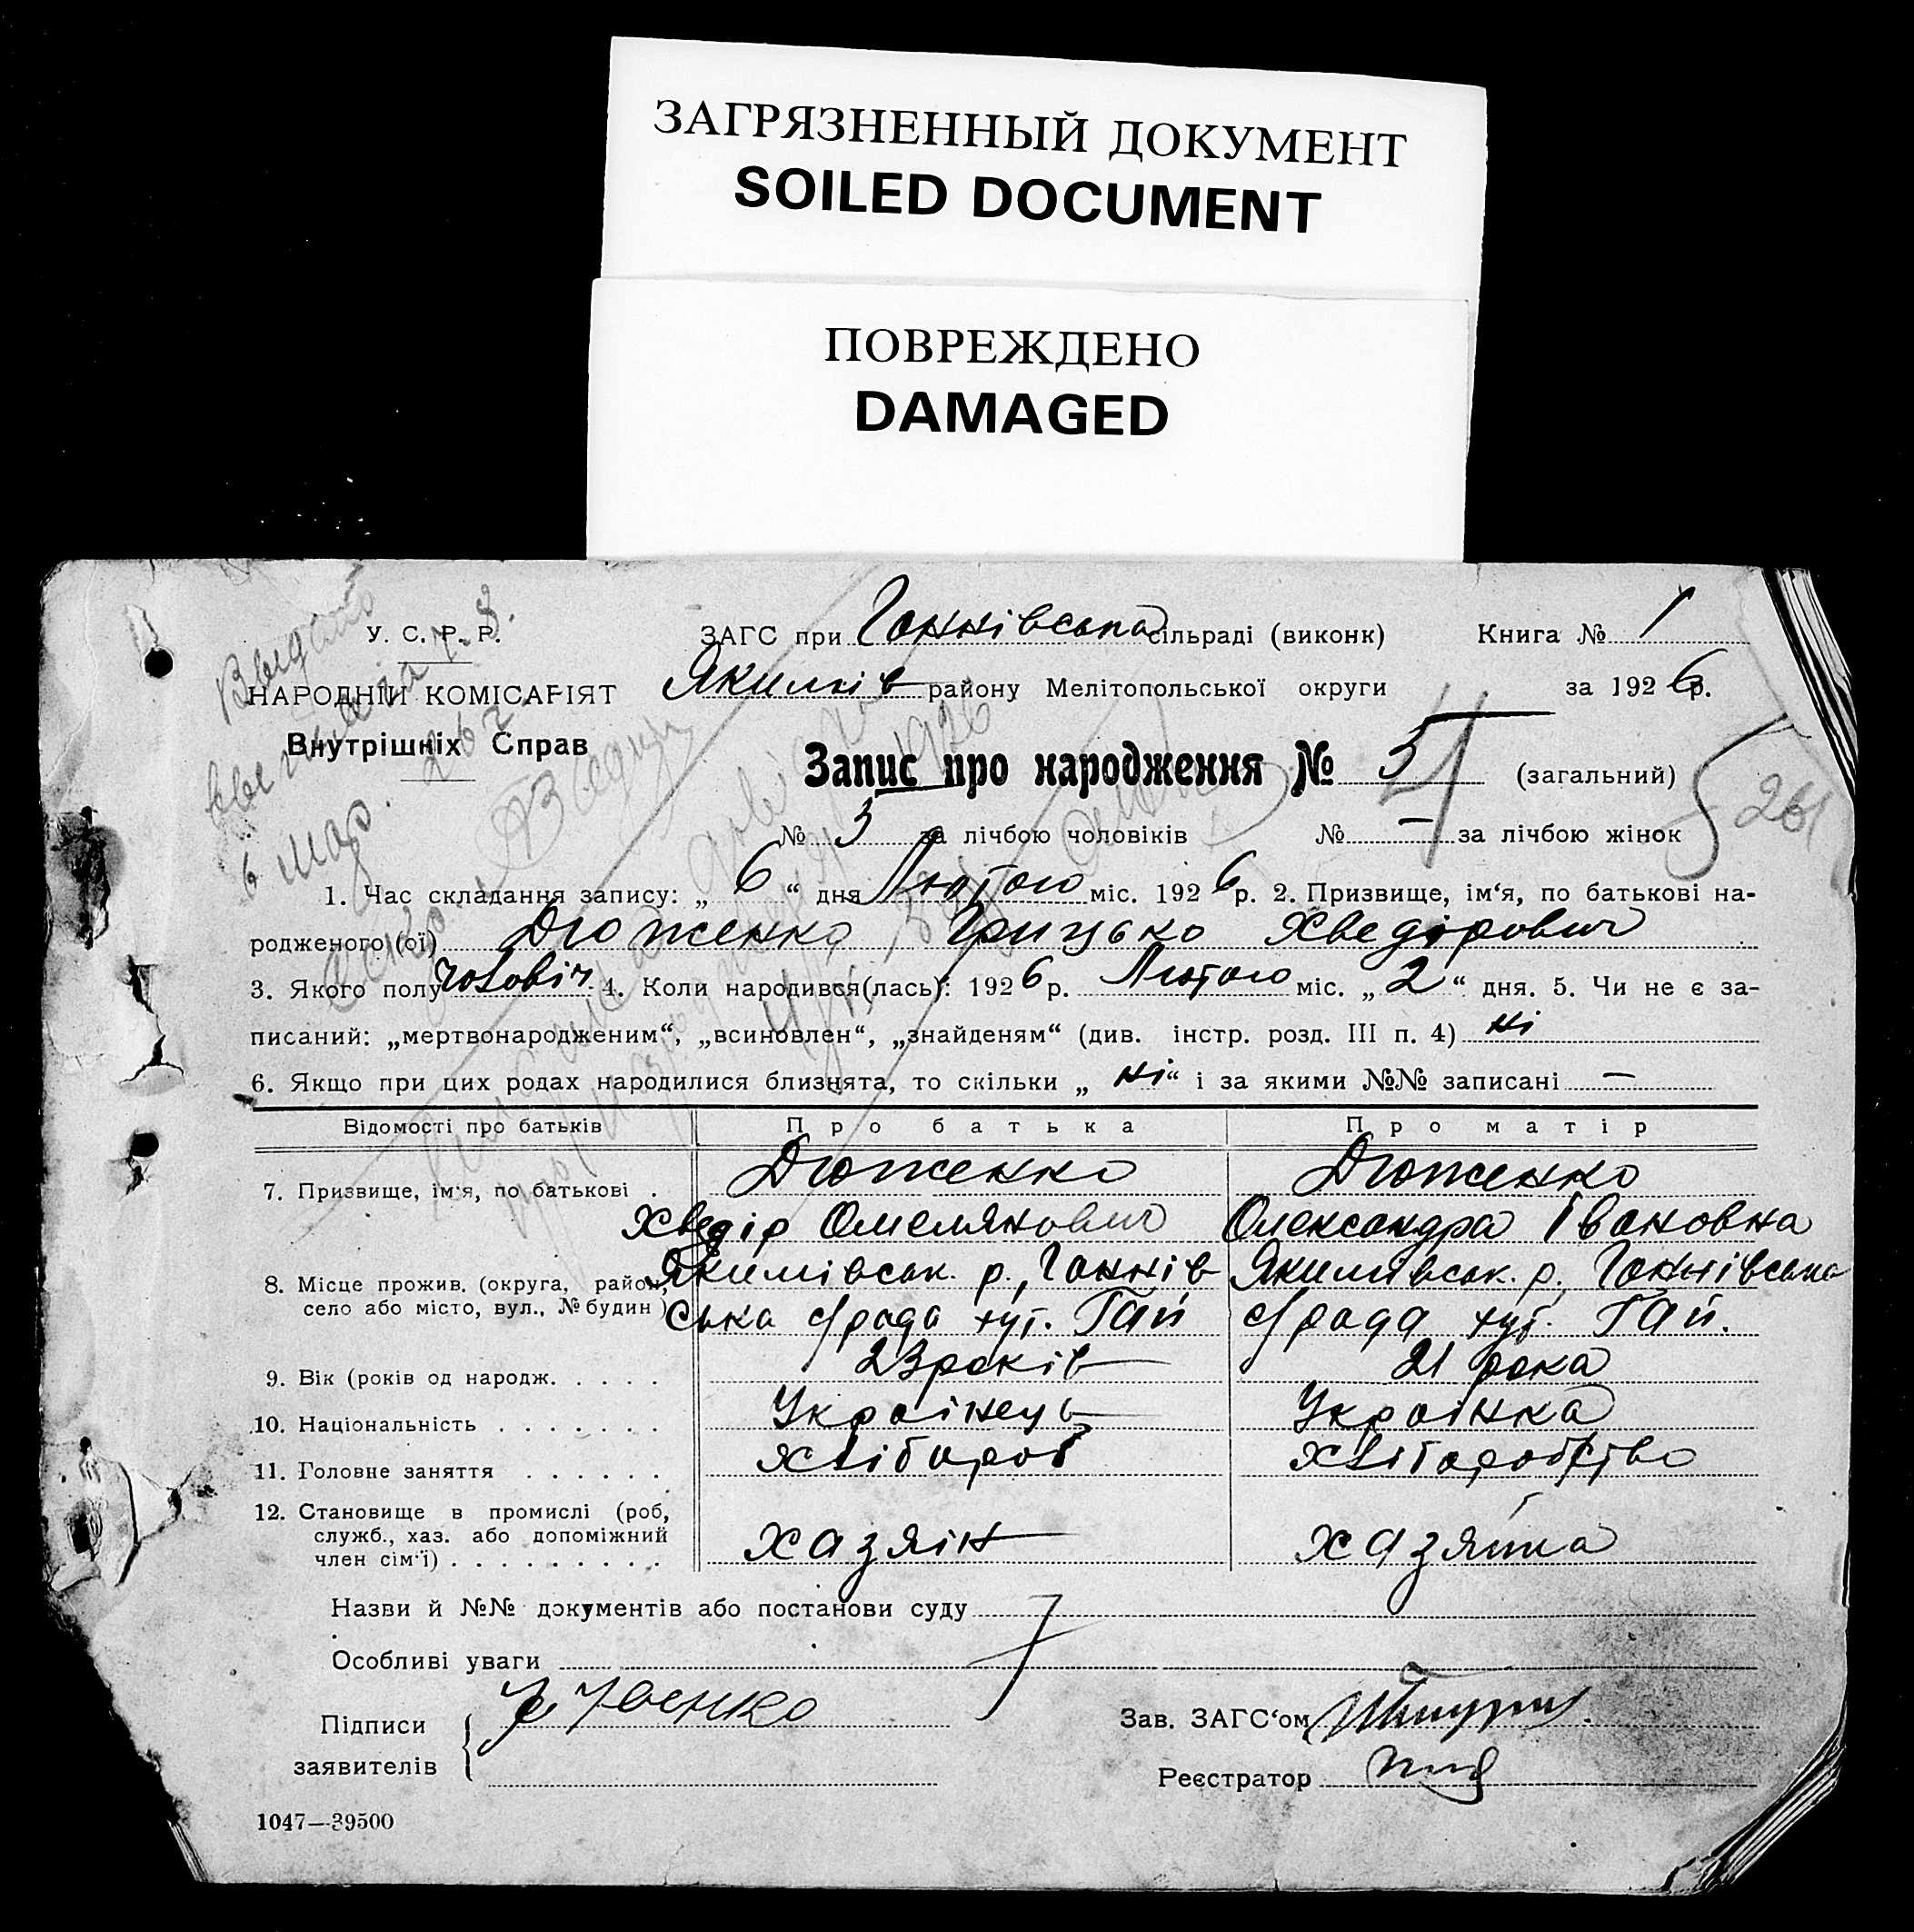 ЗАГРЯЗНЕННЫЙ ДОКУМЕНТ
SOILED DOCUMENT
ПОВРЕЖДЕНО
DAMAGED
У. С. Р. Р.
НАРОДНІЙ КОМІСАРІЯТ
Внутрішніх Справ
ЗАГС при Ганнівська сільраді (виконк) Книга № 1
Якимів району Мелітопольської округи за 1926 р.
Запис про народження № 5 (загальний)
261
№ 3 за лічбою чоловіків № — за лічбою жінок
1. Час складання запису: „ 6 “ дня Лютого міс. 1926 р. 2. Призвище, ім‘я, по батькові на-
родженого (ої) Дюженко Грицько Хведірович
3. Якого полу чоловіч. 4. Коли народився(лась): 1926 р. Лютого міс. „ 2 “ дня. 5. Чи не є за-
писаний: „мертвонародженим“, „всиновлен“, „знайденям“ (див. інстр. розд. III п. 4) ні
6. Якщо при цих родах народилися близнята, то скільки „ ні “ і за якими №№ записані —
Відомості про батьків Про батька Про матір
7. Призвище, ім‘я, по батькові . Дюженко Дюженко
Хведір Омелянович Олександра Івановна
8. Місце прожив. (округа, район, Якимівськ. р., Ганнів Якимівськ. р. Ганнівська
село або місто, вул., № будин ) ська с/рада хут. Гай с/рада хут. Гай.
9. Вік (років од народж. . . . . 23 років 21 рока
10. Національність . . . . . . . Українець Українка
11. Головне заняття . . . . . . Хлібороб Хліборобство
12. Становище в промислі (роб,
служб., хаз. або допоміжний
член сім‘ї) . . . . . . . . . хазяїн хазяйка
Назви й №№ документів або постанови суду
Особливі уваги
Підписи
заявителів
Зав. ЗАГС‘ом
Реєстратор
1047—39500